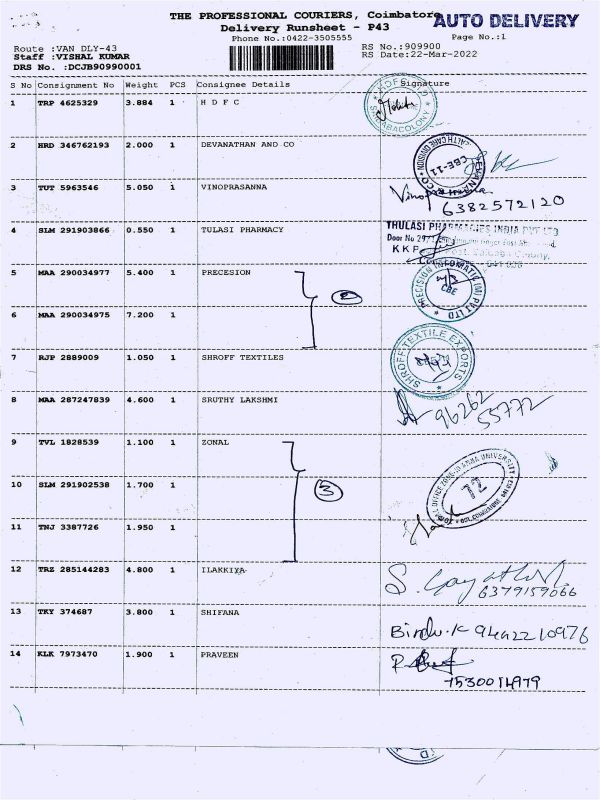 THE PROFESSIONAL COURIERS, Coimbatore
AUTO DELIVERY
Delivery Runsheet - P43
Phone No.:0422-3505555
Page No.:1
Route :VAN DLY-43
RS No.:909900
Staff :VISHAL KUMAR
RS Date:22-Mar-2022
DRS No. :DCJB90990001
S No Consignment No Weight PCS Consignee Details Signature
1 TRP 4625329 3.884 1 H D F C
2 HRD 346762193 2.000 1 DEVANATHAN AND CO
CBE-11
3 TUT 5963546 5.050 1 VINOPRASANNA
6382572120
4 SLM 291903866 0.550 1 TULASI PHARMACY
THULASI PHARMACIES INDIA PVT LTD
Door No 297
KKP
5 MAA 290034977 5.400 1 PRECESION
PRECISION INFOMATIC (M) PVT LTD
CBE
2
6 MAA 290034975 7.200 1
7 RJP 2889009 1.050 1 SHROFF TEXTILES
SHROFF TEXTILE EXPORTS
8 MAA 287247839 4.600 1 SRUTHY LAKSHMI
96262
55772
9 TVL 1828539 1.100 1 ZONAL
10 SLM 291902538 1.700 1
3
ANNA UNIVERSITY
12
11 TNJ 3387726 1.950 1
12 TRZ 285144283 4.800 1 ILAKKIYA
S. Gayathri
6379159066
13 TKY 374687 3.800 1 SHIFANA
Bindu.K 9442210976
14 KLK 7973470 1.900 1 PRAVEEN
7530014979